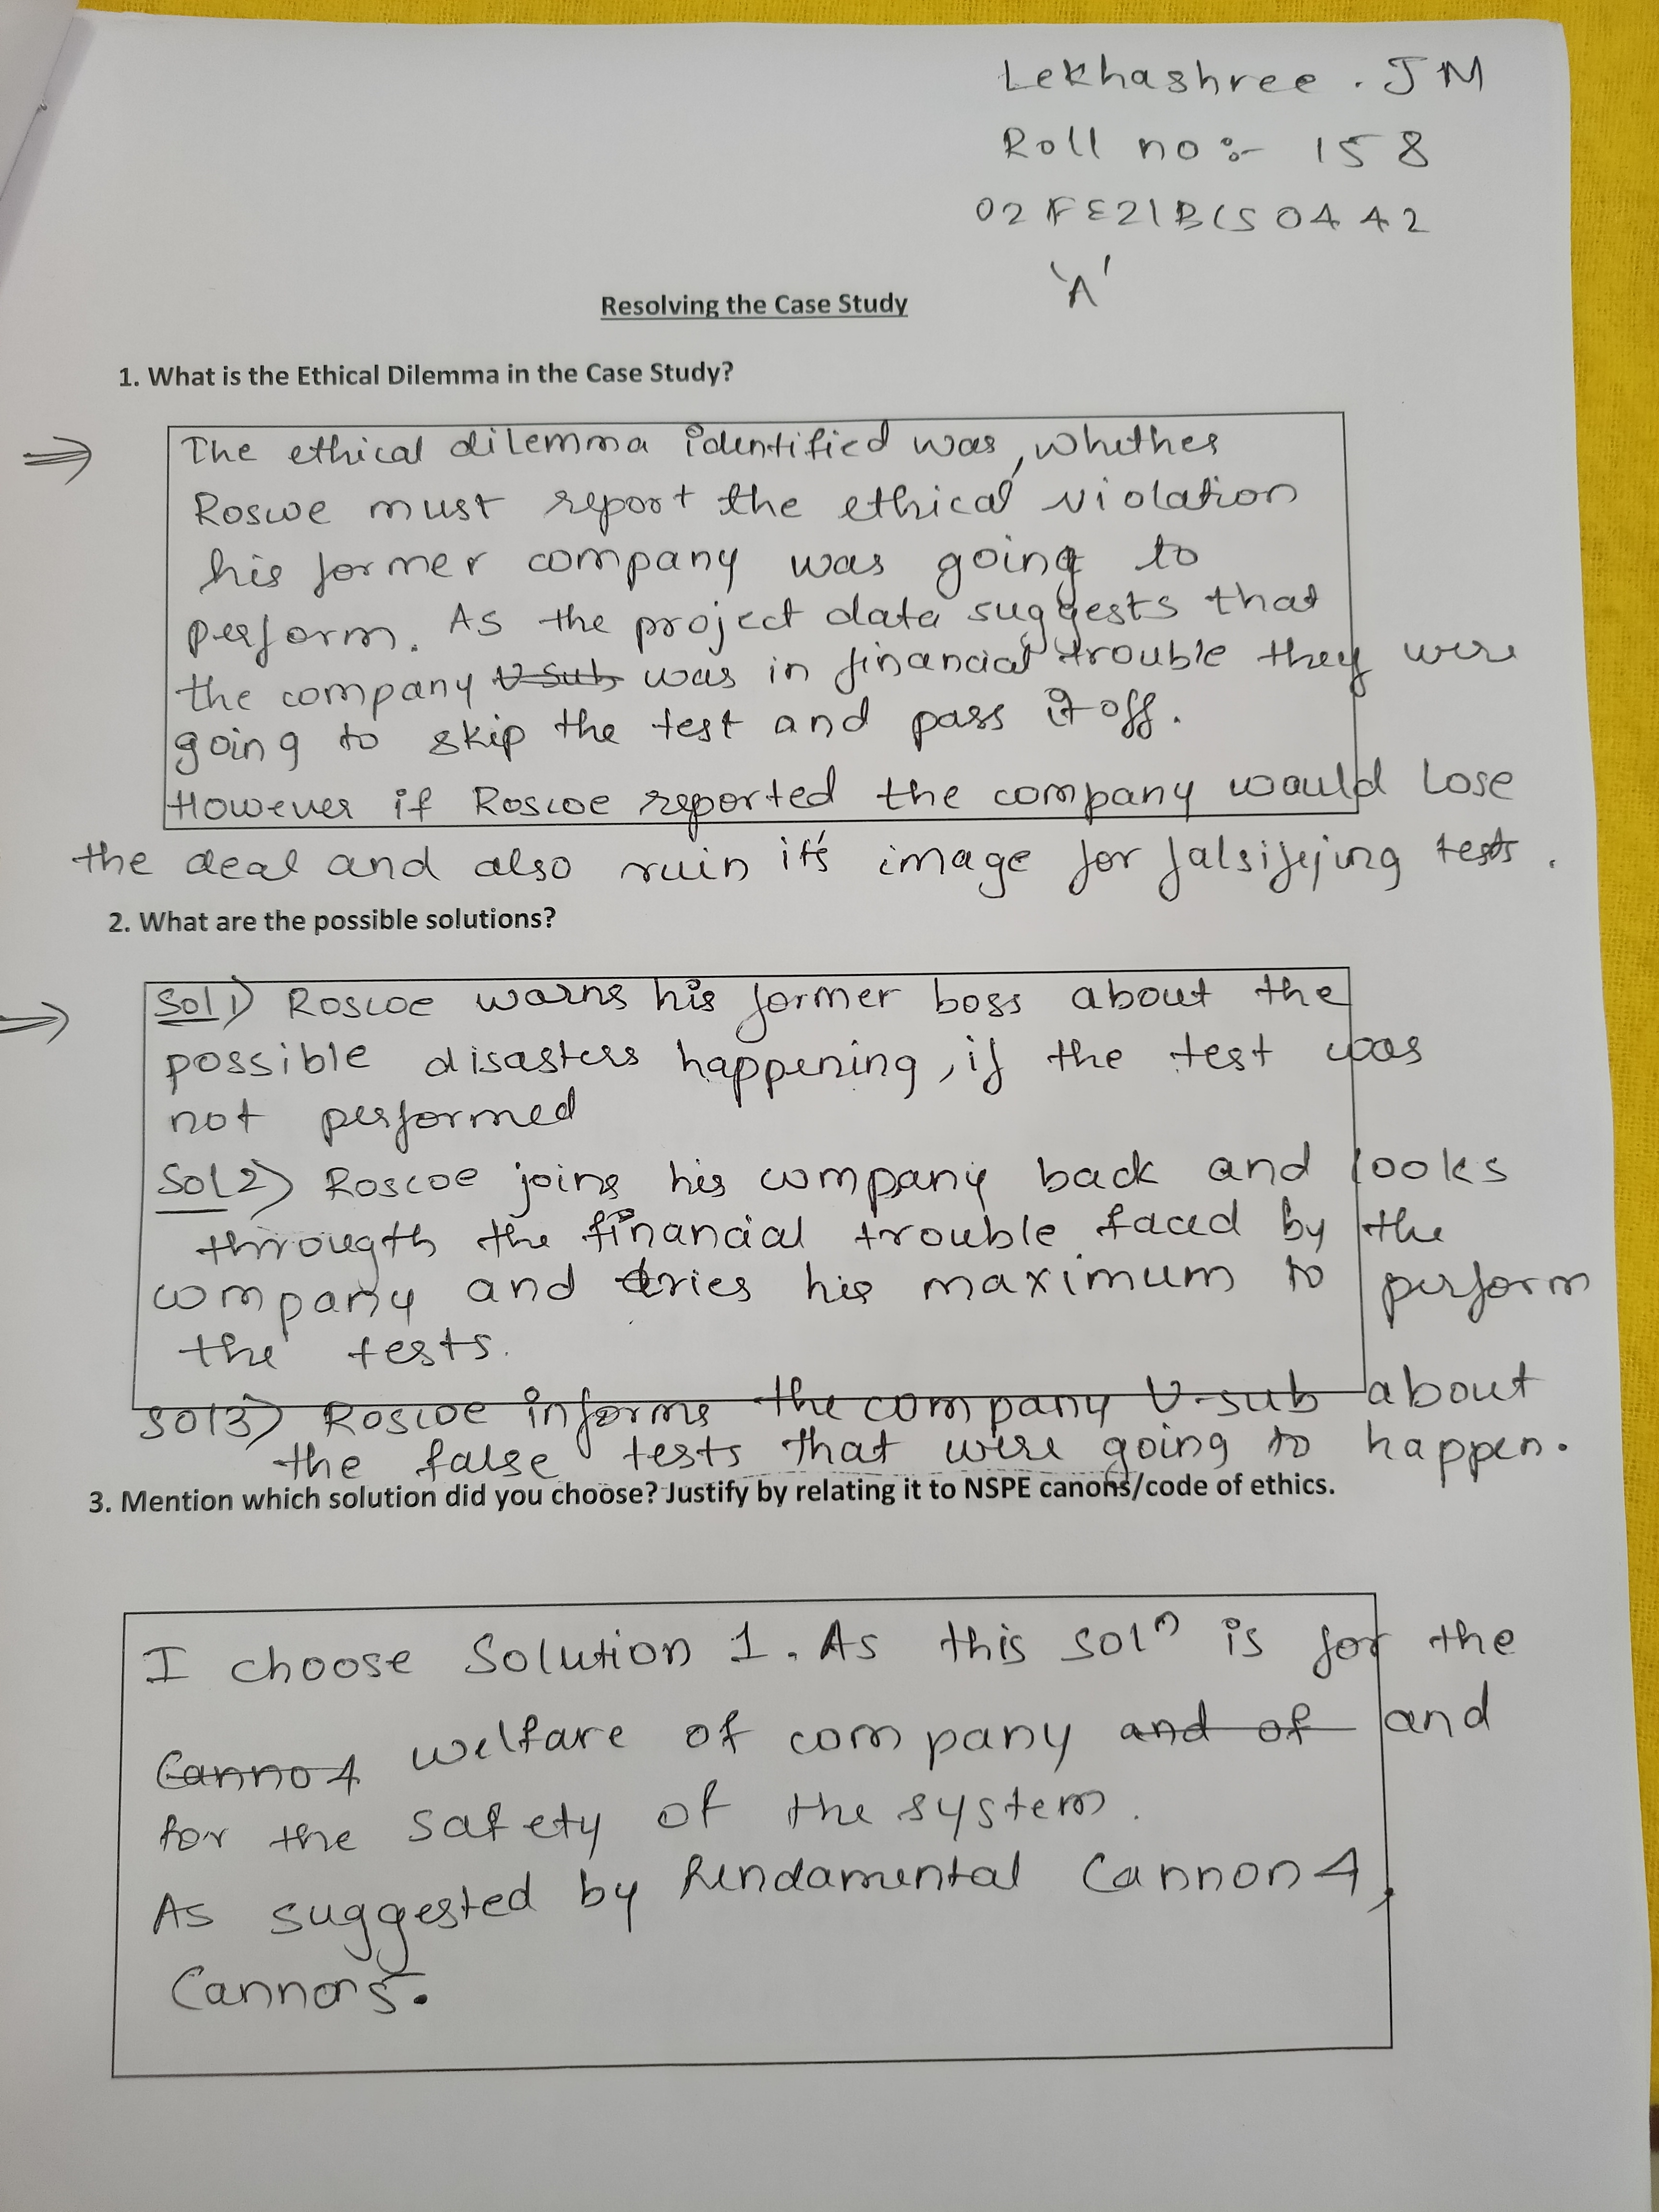 Lekhashree . JM
Roll no :- 158
02FE21BCS0442
'A'
Resolving the Case Study
1. What is the Ethical Dilemma in the Case Study?
The ethical dilemma identified was, whether
Roscoe must report the ethical violation
his former company was going to
perform. As the project data suggests that
the company V-Sub was in financial trouble they were
going to skip the test and pass it off.
However if Roscoe reported the company would lose
the deal and also ruin it's image for falsifying tests.
2. What are the possible solutions?
Sol1) Roscoe warns his former boss about the
possible disasters happening, if the test was
not performed
Sol2) Roscoe joins his company back and looks
througth the financial trouble faced by the
company and tries his maximum to perform
the tests.
Sol3) Roscoe informs the company V-sub about
the false tests that were going to happen.
3. Mention which solution did you choose? Justify by relating it to NSPE canons/code of ethics.
I choose Solution 1. As this solⁿ is for the
Canno 4 welfare of company and of and
for the safety of the system.
As suggested by fundamental Cannon 4,
Cannon 5.